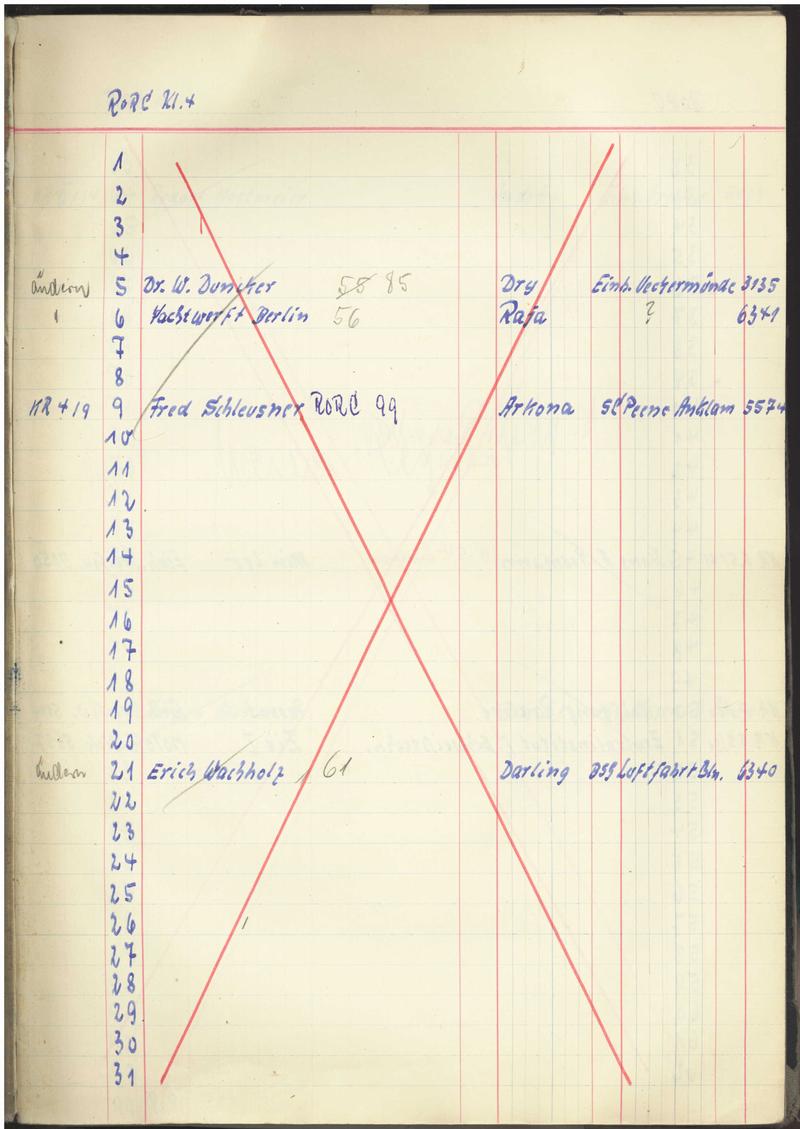 RORC Kl. 4
1
2
3
4
ändern 5 Dr. W. Duncker 55 85 Dry Einh. Ueckermünde 3135
" 6 Yachtwerft Berlin 56 Raja ? 6341
7
8
KR 419 9 Fred Schleusner RORC 99 Arkona SC Peene Anklam 5574
10
11
12
13
14
15
16
17
18
19
20
ändern 21 Erich Wachholz 61 Darling BSG Luftfahrt Bln. 6340
22
23
24
25
26
27
28
29
30
31